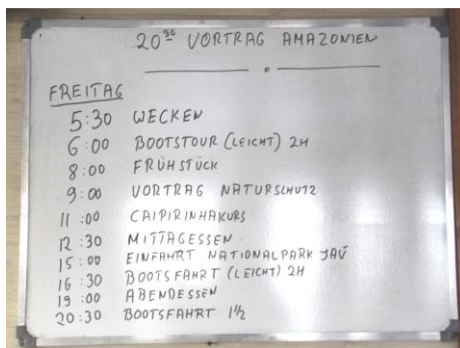 20:30 VORTRAG AMAZONIEN
FREITAG
5:30 WECKEN
6:00 BOOTSTOUR (LEICHT) 2H
8:00 FRÜHSTÜCK
9:00 VORTRAG NATURSCHUTZ
11:00 CAIPIRINHAKURS
12:30 MITTAGESSEN
15:00 EINFAHRT NATIONALPARK JAÚ
16:30 BOOTSFAHRT (LEICHT) 2H
19:00 ABENDESSEN
20:30 BOOTSFAHRT 1½